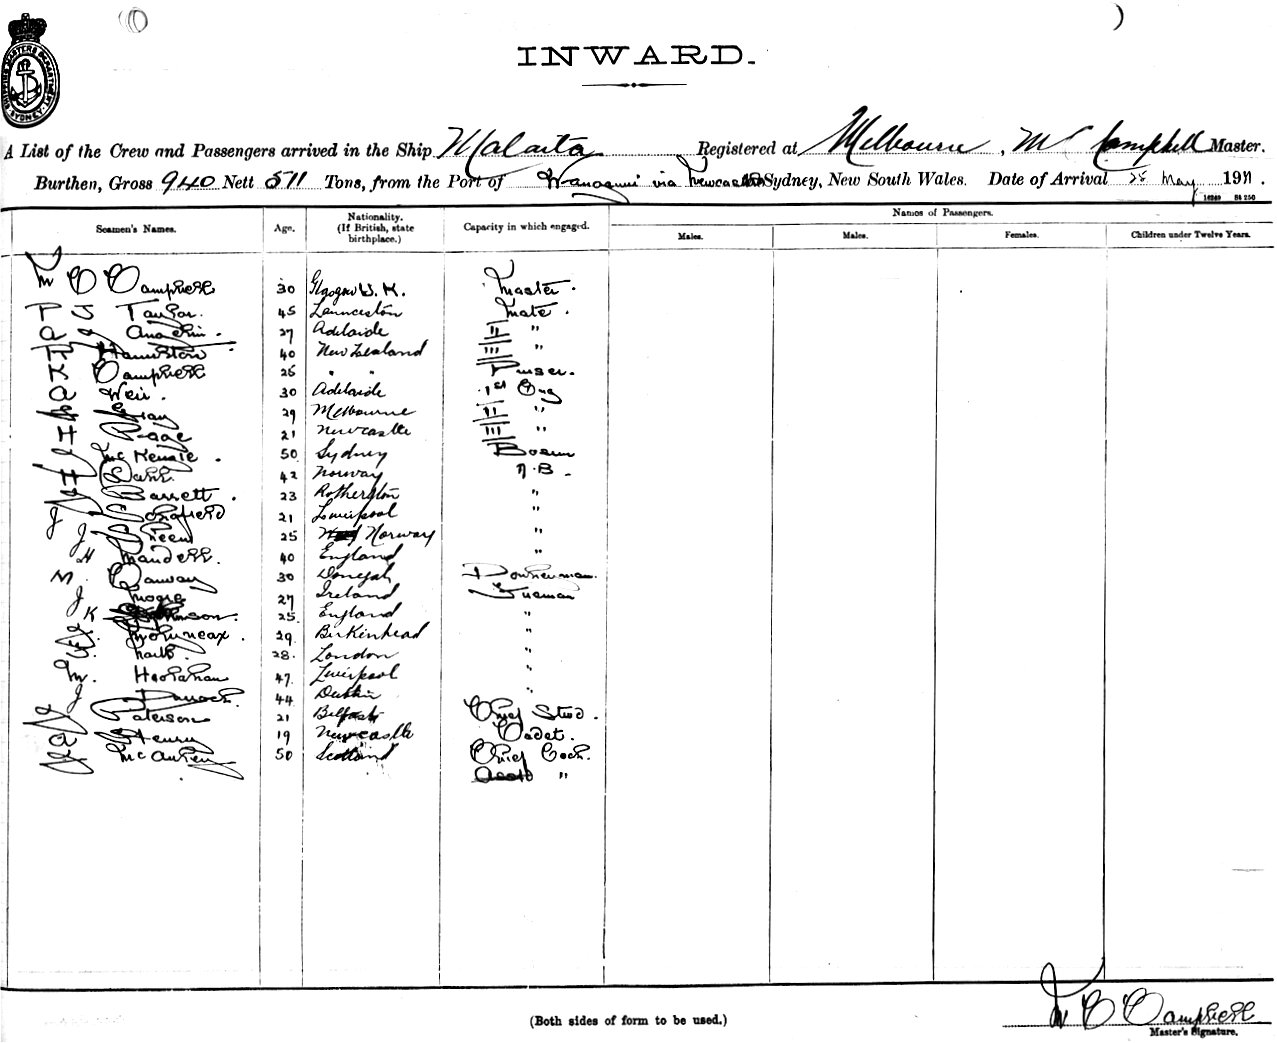 SHIPPING MASTERS DEPARTMENT SYDNEY
INWARD.
A List of the Crew and Passengers arrived in the Ship Malaita Registered at Melbourne, M C Campbell Master.
Burthen, Gross 940 Nett 511 Tons, from the Port of via Newcastle Sydney, New South Wales. Date of Arrival 25 May 1911.
Names of Passengers.
Seamen's Names. Age. Nationality. (If British, state birthplace.) Capacity in which engaged. Males. Males. Females. Children under Twelve Years.
M C Campbell 30 Glasgow U.K. Master.
P J Taylor. 45 Launceston Mate.
A 27 Adelaide II "
R Hamilton 40 New Zealand III "
K Campbell 26 " " Purser.
A Weir. 30 Adelaide 1st Eng
Gray 29 Melbourne II "
H Page 21 Newcastle III "
McKenzie. 50 Sydney Bosun
H Dahl 42 Norway A.B.
Barrett. 23 "
J 21 Liverpool "
J Green 25 Norway "
H Mandell. 40 England "
M. 30 Donegal Donkeyman.
J Moore 27 Ireland Fireman
K 25. England "
Molyneax. 29. Birkinhead "
28. London "
M. Hoolahan 47. Liverpool "
J 44 Dublin "
Paterson 21 Belfast Chief Stwd.
A Henry 19 Newcastle Cadet.
McAuley 50 Scotland Chief Cook.
Asst "
(Both sides of form to be used.)
M C Campbell
Master's Signature.